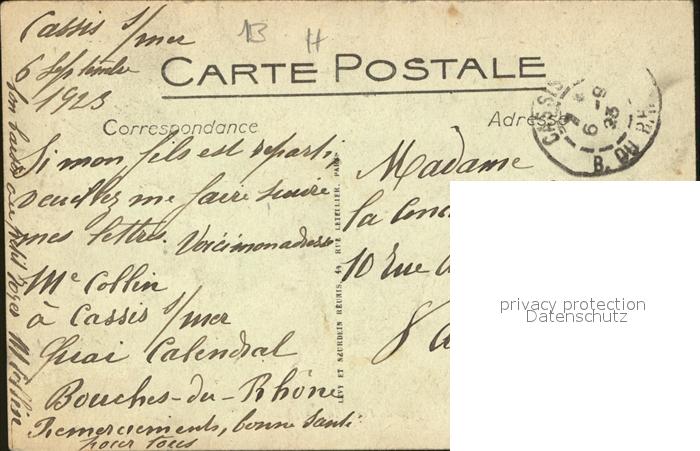 Cassis s/mer
6 Septembre
1923
B H
CARTE POSTALE
Correspondance
Adresse
CASSIS
6 -9
23
B. DU RH.
Si mon fils est reparti
veuillez me faire suivre
mes lettres. Voici mon adresse
Me Collin
à Cassis s/mer
Quai Calendral
Bouches-du-Rhône
Remerciements, bonne santé
pour tous
LEVY ET NEURDEIN RÉUNIS, 44 RUE LETELLIER, PARIS
Madame
la
10 Rue
privacy protection
Datenschutz